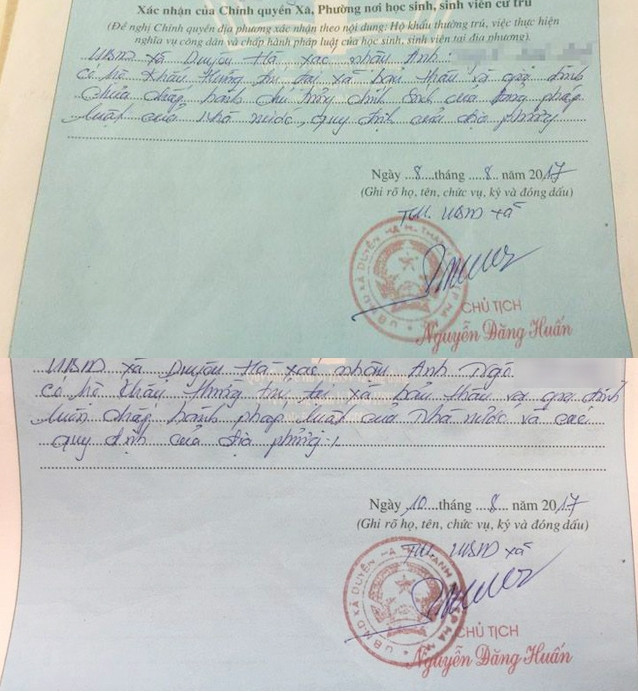 Xác nhận của Chính quyền Xã, Phường nơi học sinh, sinh viên cư trú
(Đề nghị Chính quyền địa phương xác nhận theo nội dung: Hộ khẩu thường trú, việc thực hiện
nghĩa vụ công dân và chấp hành pháp luật của học sinh, sinh viên tại địa phương).
UBND xã Duyên Hà xác nhận Anh
có hộ khẩu thường trú tại xã bản thân và gia đình
chưa chấp hành chủ trương chính sách của Đảng pháp
luật của Nhà nước, quy định của địa phương
Ngày 8 tháng 8 năm 2017
(Ghi rõ họ, tên, chức vụ, ký và đóng dấu)
TM. UBND xã
CHỦ TỊCH
Nguyễn Đăng Huấn
UBND xã Duyên Hà xác nhận Anh Ngô
có hộ khẩu thường trú tại xã bản thân và gia đình
luôn chấp hành pháp luật của Nhà nước và các
quy định của địa phương./.
Ngày 10 tháng 8 năm 2017
(Ghi rõ họ, tên, chức vụ, ký và đóng dấu)
TM. UBND xã
CHỦ TỊCH
Nguyễn Đăng Huấn